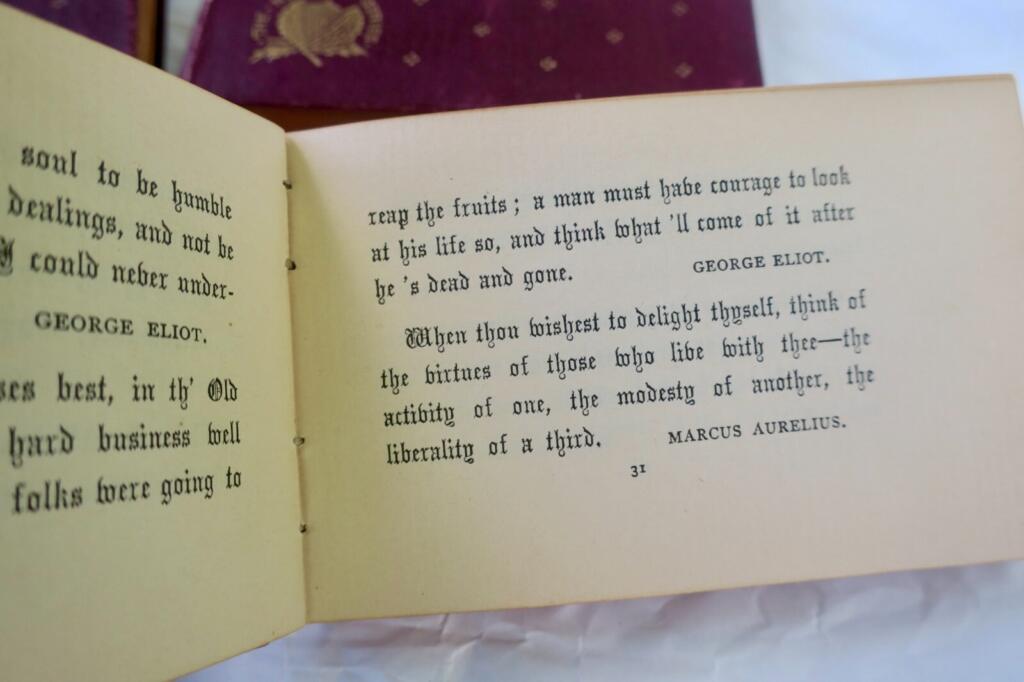 soul to be humble
dealings, and not be
I could never under-
GEORGE ELIOT.
best, in th' Old
hard business well
folks were going to
reap the fruits; a man must have courage to look
at his life so, and think what 'll come of it after
he 's dead and gone. GEORGE ELIOT.
When thou wishest to delight thyself, think of
the virtues of those who live with thee—the
activity of one, the modesty of another, the
liberality of a third. MARCUS AURELIUS.
31